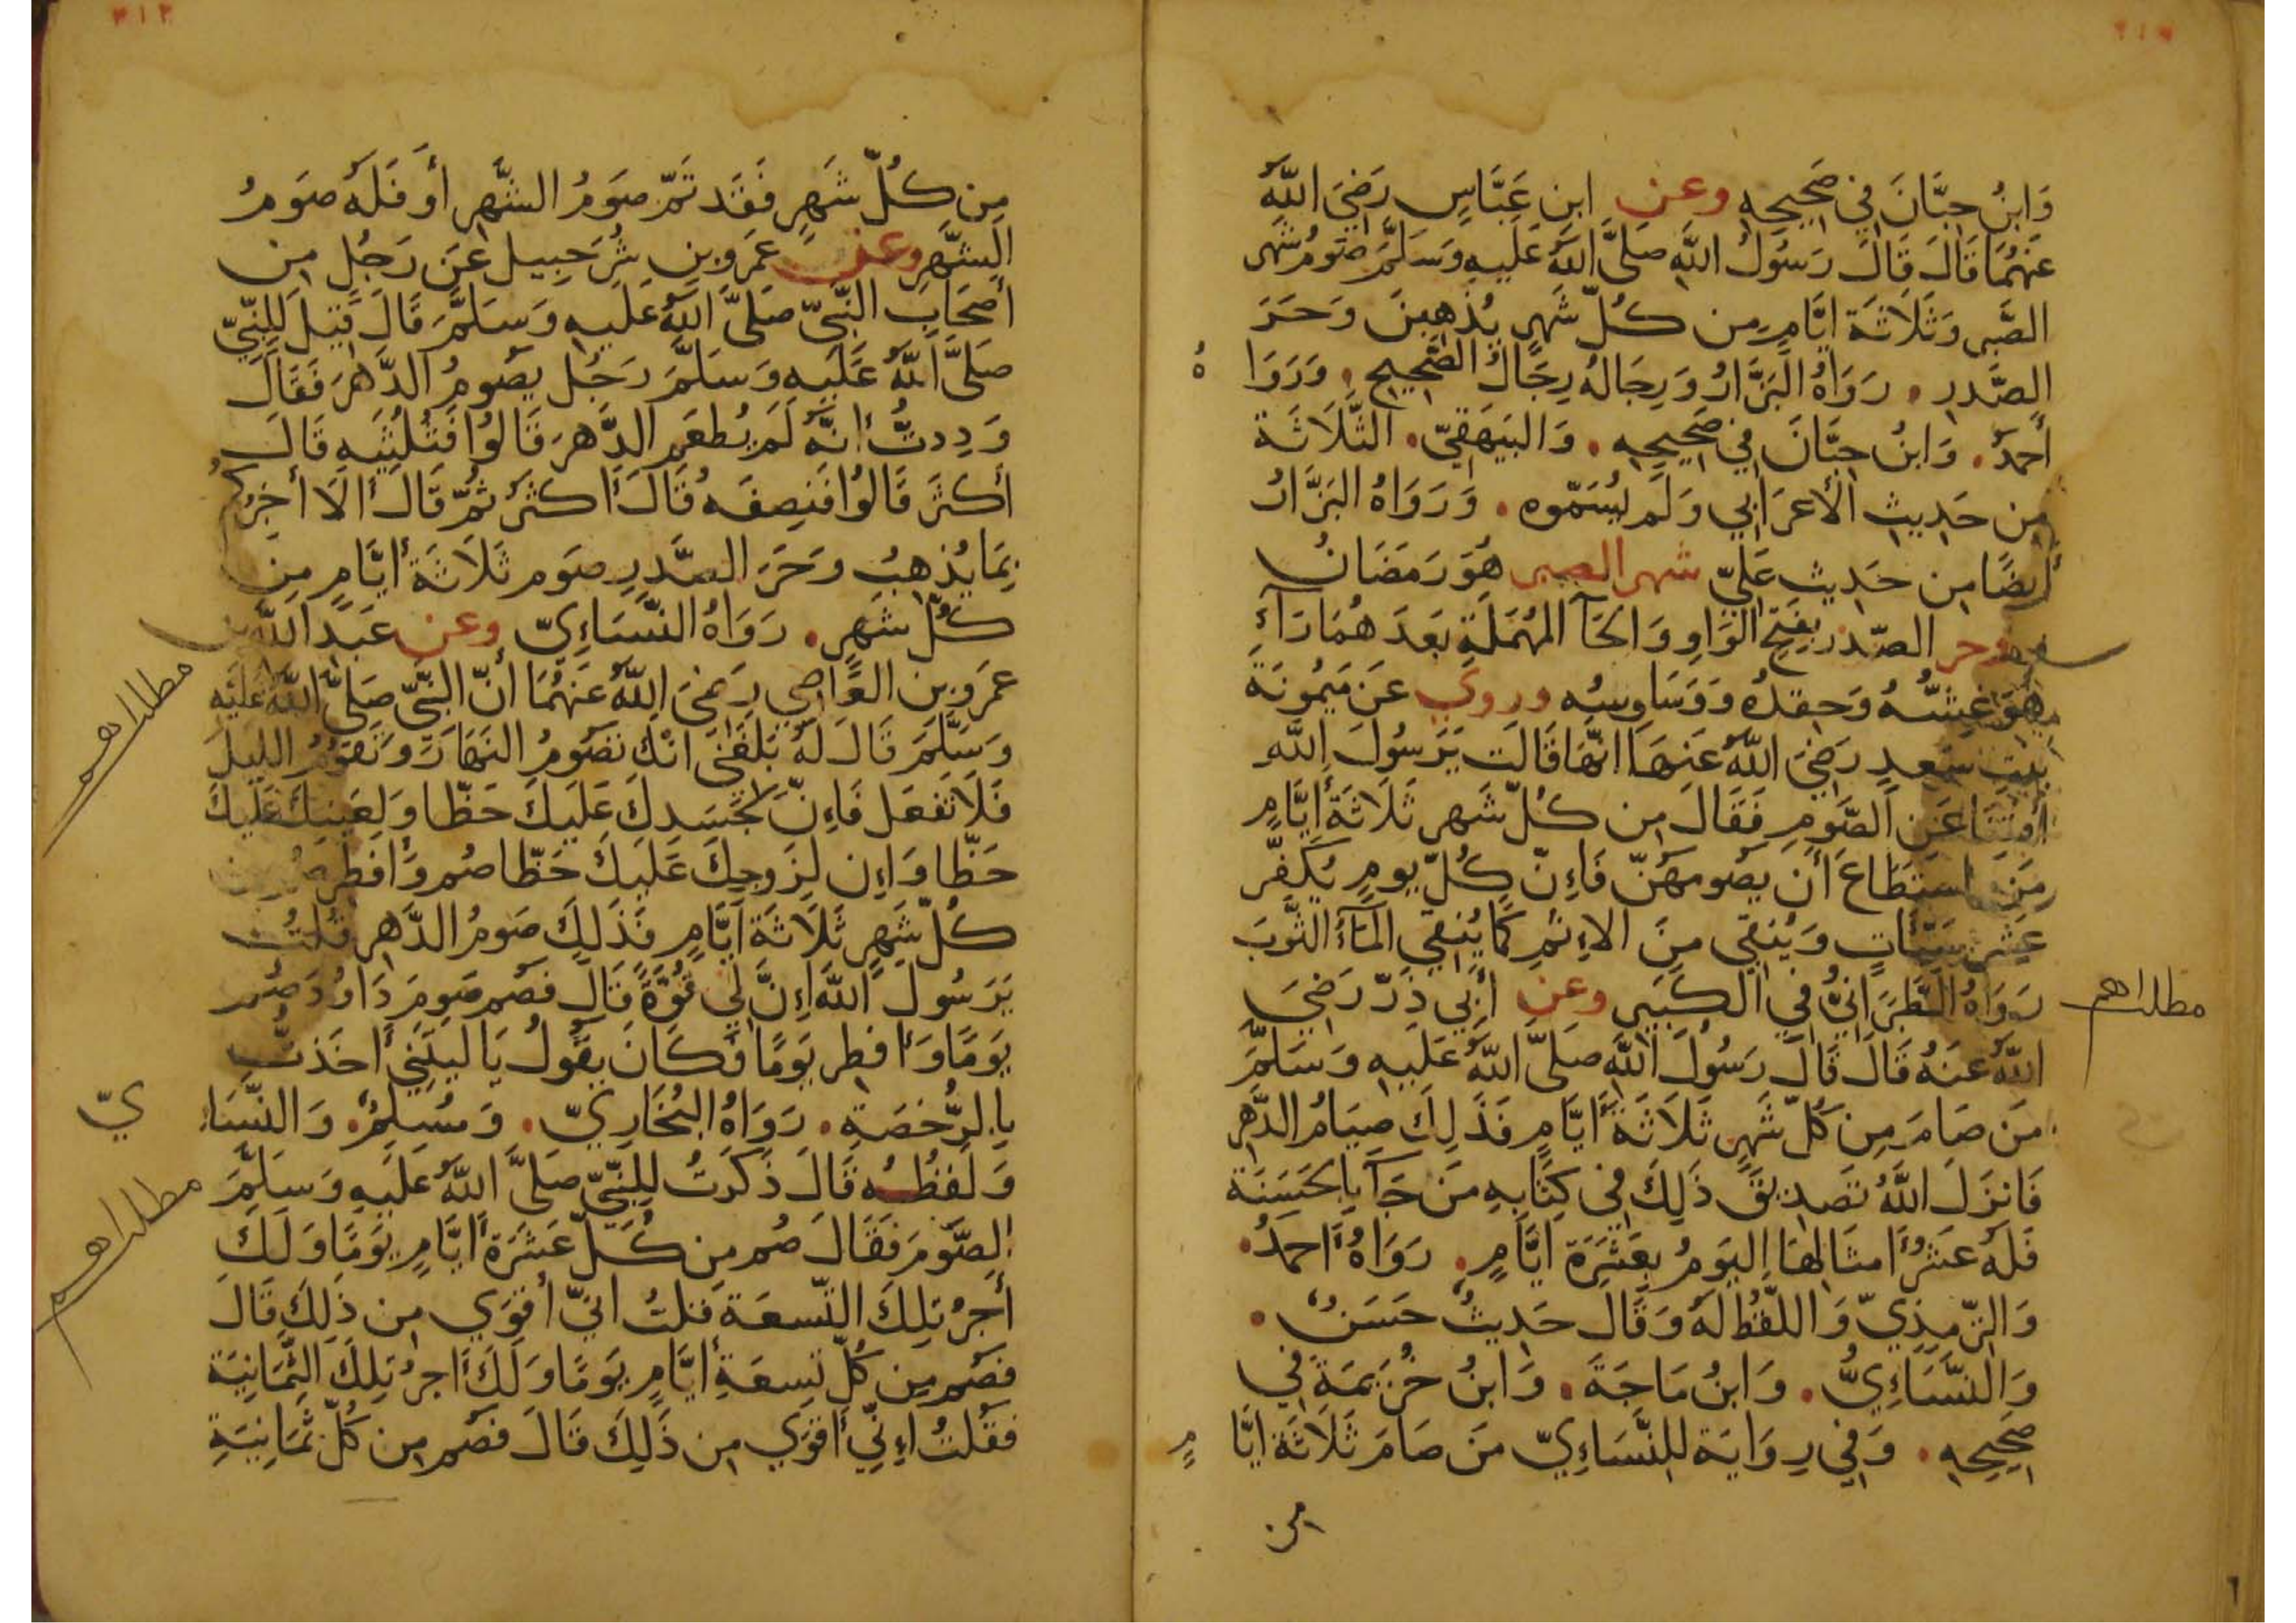 ٢١٢
وَابنُ حِبَّانَ فِي صَحِيحِهِ وعن ابن عَبَّاسٍ رَضِيَ اللَّهُ
عَنهُمَا قَالَ قَالَ رَسُولُ اللَّهِ صَلَّى اللَّهُ عَلَيهِ وَسَلَّمَ صَومُ شَهر
الصَّبر وَثَلَاثَة ايَّامٍ مِن كُلّ شَهرٍ يُذهِبنَ وَحَرَ
الصَّدرِ . رَوَاهُ البَزَّارُ وَرِجَالهُ رِجَالُ الصَّحِيحِ . وَرَوَا هُ
أحمدُ . وَابنُ حِبَّانَ فِي صَحِيحِهِ . وَالبَيهَقِيّ . الثَّلَاثَة
مِن حَدِيثِ الأعرَابِي وَلَم يُسَمّوه . وَرَوَاهُ البَزَّارُ
أيضًا مِن حَدِيثِ عَلِيّ شهر الصبر هُوَ رَمَضَانُ
ووحر الصّدر بِفَتحِ الوَاوِ وَالحَآ المُهمَلَةِ بَعدَهُمَا رَآءٌ
هُوَ غِشّهُ وَحِقدُهُ وَوَسَاوِسُه وروي عَن مَيمُونَةَ
بِنتِ سَعدٍ رَضِيَ اللَّهُ عَنهَا انّهَا قَالَت يَرَسُولَ اللَّهِ
أفتِنَا عَنِ الصَّومِ فَقَالَ مِن كُلّ شَهرٍ ثَلَاثَةُ أيَّامٍ
مَنِ استَطَاعَ أن يَصُومَهُنّ فَإِنّ كُلّ يومٍ يُكَفّر
عَشرَ سَيّئَاتٍ وَيُنقِي مِنَ الاِثمِ كَمَا يُنقِي المَآءُ الثَّوبَ
رَوَاهُ الطَّبَرَانِيُّ فِي الكَبِيرِ وعن أَبِي ذَرّ رَضِيَ
اللَّهُ عَنهُ قَالَ قَالَ رَسُولُ اللَّهِ صَلَّى اللَّهُ عَلَيهِ وَسَلَّمَ
مَن صَامَ مِن كُلّ شَهرٍ ثَلَاثَةَ أيَّامٍ فَذَلِكَ صِيَامُ الدَّهرِ
فَانزَلَ اللَّهُ تَصدِيقَ ذَلِكَ فِي كِتَابِهِ مَن جَآ بِالحَسَنَة
فَلَهُ عَشرُ امثَالِهَا اليَومُ بِعَشَرَة ايَّامٍ . رَوَاهُ احمَدُ .
وَالتّرمِذِيّ وَاللَّفظُ لَهُ وَقَالَ حَدِيثٌ حَسَنٌ .
وَالنَّسَاءِيُّ . وَابنُ مَاجَةَ . وَابنُ خُزَيمَةَ فِي
صَحِيحِهِ . وَفِي رِوَايَة لِلنَّسَاءِيّ مَن صَامَ ثَلَاثَةَ ايَّا مٍ
من
مِن كُلّ شَهرٍ فَقَد تَمّ صَومُ الشَّهرِ أو فَلَهُ صَومُ
الشَّهرِ وعن عَمرو بنِ شُرَحبِيل عَن رَجُلٍ مِن
أصحَابِ النَّبِيّ صَلَّى اللَّهُ عَلَيهِ وَسَلَّمَ قَالَ قِيلَ لِلنّبِيّ
صَلَّى اللَّهُ عَلَيهِ وَسَلَّمَ رَجُل يَصُومُ الدَّهرَ فَقَالَ
وَدِدتُّ انَّهُ لَم يُطعَم الدَّهرَ قَالُوا فَثُلُثَيهِ قَالَ
أكثَرَ قَالُوا فَنِصفَهُ قَالَ أكثَرَ ثُمّ قَالَ ألَا أخبِرُكُم
بِمَا يُذهِبُ وَحَرَ الصَّدرِ صَوم ثَلَاثَةِ أيَّامٍ مِن
كُلّ شَهرٍ . رَوَاهُ النَّسَاءِيّ وعن عَبدِ اللَّهِ بن
عَمرو بن العَاصِي رَضِيَ اللَّهُ عَنهُمَا أنّ النَّبِيّ صَلَّى اللَّهُ عَلَيه
وَسَلَّمَ قَالَ لَهُ بَلَغَنِي انّكَ تَصُومُ النَهَارَ وَتَقُومُ اللَيلَ
فَلَا تَفعَل فَإِنّ لِجَسَدِكَ عَلَيكَ حَظّا وَلِعَينِكَ عَلَيكَ
حَظّا وَإِن لِزَوجِكَ عَلَيكَ حَظّا صُم وَأفطِر صُم من
كُلّ شَهرٍ ثَلَاثَةَ أيَّامٍ فَذَلِكَ صَومُ الدَّهرِ قُلتُ
يَرَسُولَ اللَّهِ إِنَّ لِي قُوَّةً قَالَ فَصُم صَومَ دَاوُدَ صُم
يَومًا وَأفطِر يَومًا فَكَانَ يَقُولُ يَا لَيتَنِي أخَذتُ
بِالرُّخصَةِ . رَوَاهُ البُخَارِيّ . وَمُسلِمٌ . وَالنَّسَاءِ يّ
وَلَفظُه قَالَ ذَكَرتُ لِلنّبِيّ صَلَّى اللَّهُ عَلَيهِ وَسَلَّمَ
الصَّومَ فَقَالَ صُم مِن كُلّ عَشَرَةِ أيَّامٍ يَومًا وَلَكَ
أجرُ تِلكَ التّسعَة قلتُ انيّ أقوَي مِن ذَلِكَ قَالَ
فَصُم مِن كُلّ تِسعَةِ أيَّامٍ يَومًا وَلَكَ أجرُ تِلكَ الثّمَانِيَة
فَقُلتُ إِنِّي أقوَي مِن ذَلِكَ قَالَ فَصُم مِن كُلّ ثَمَانِيَةِ